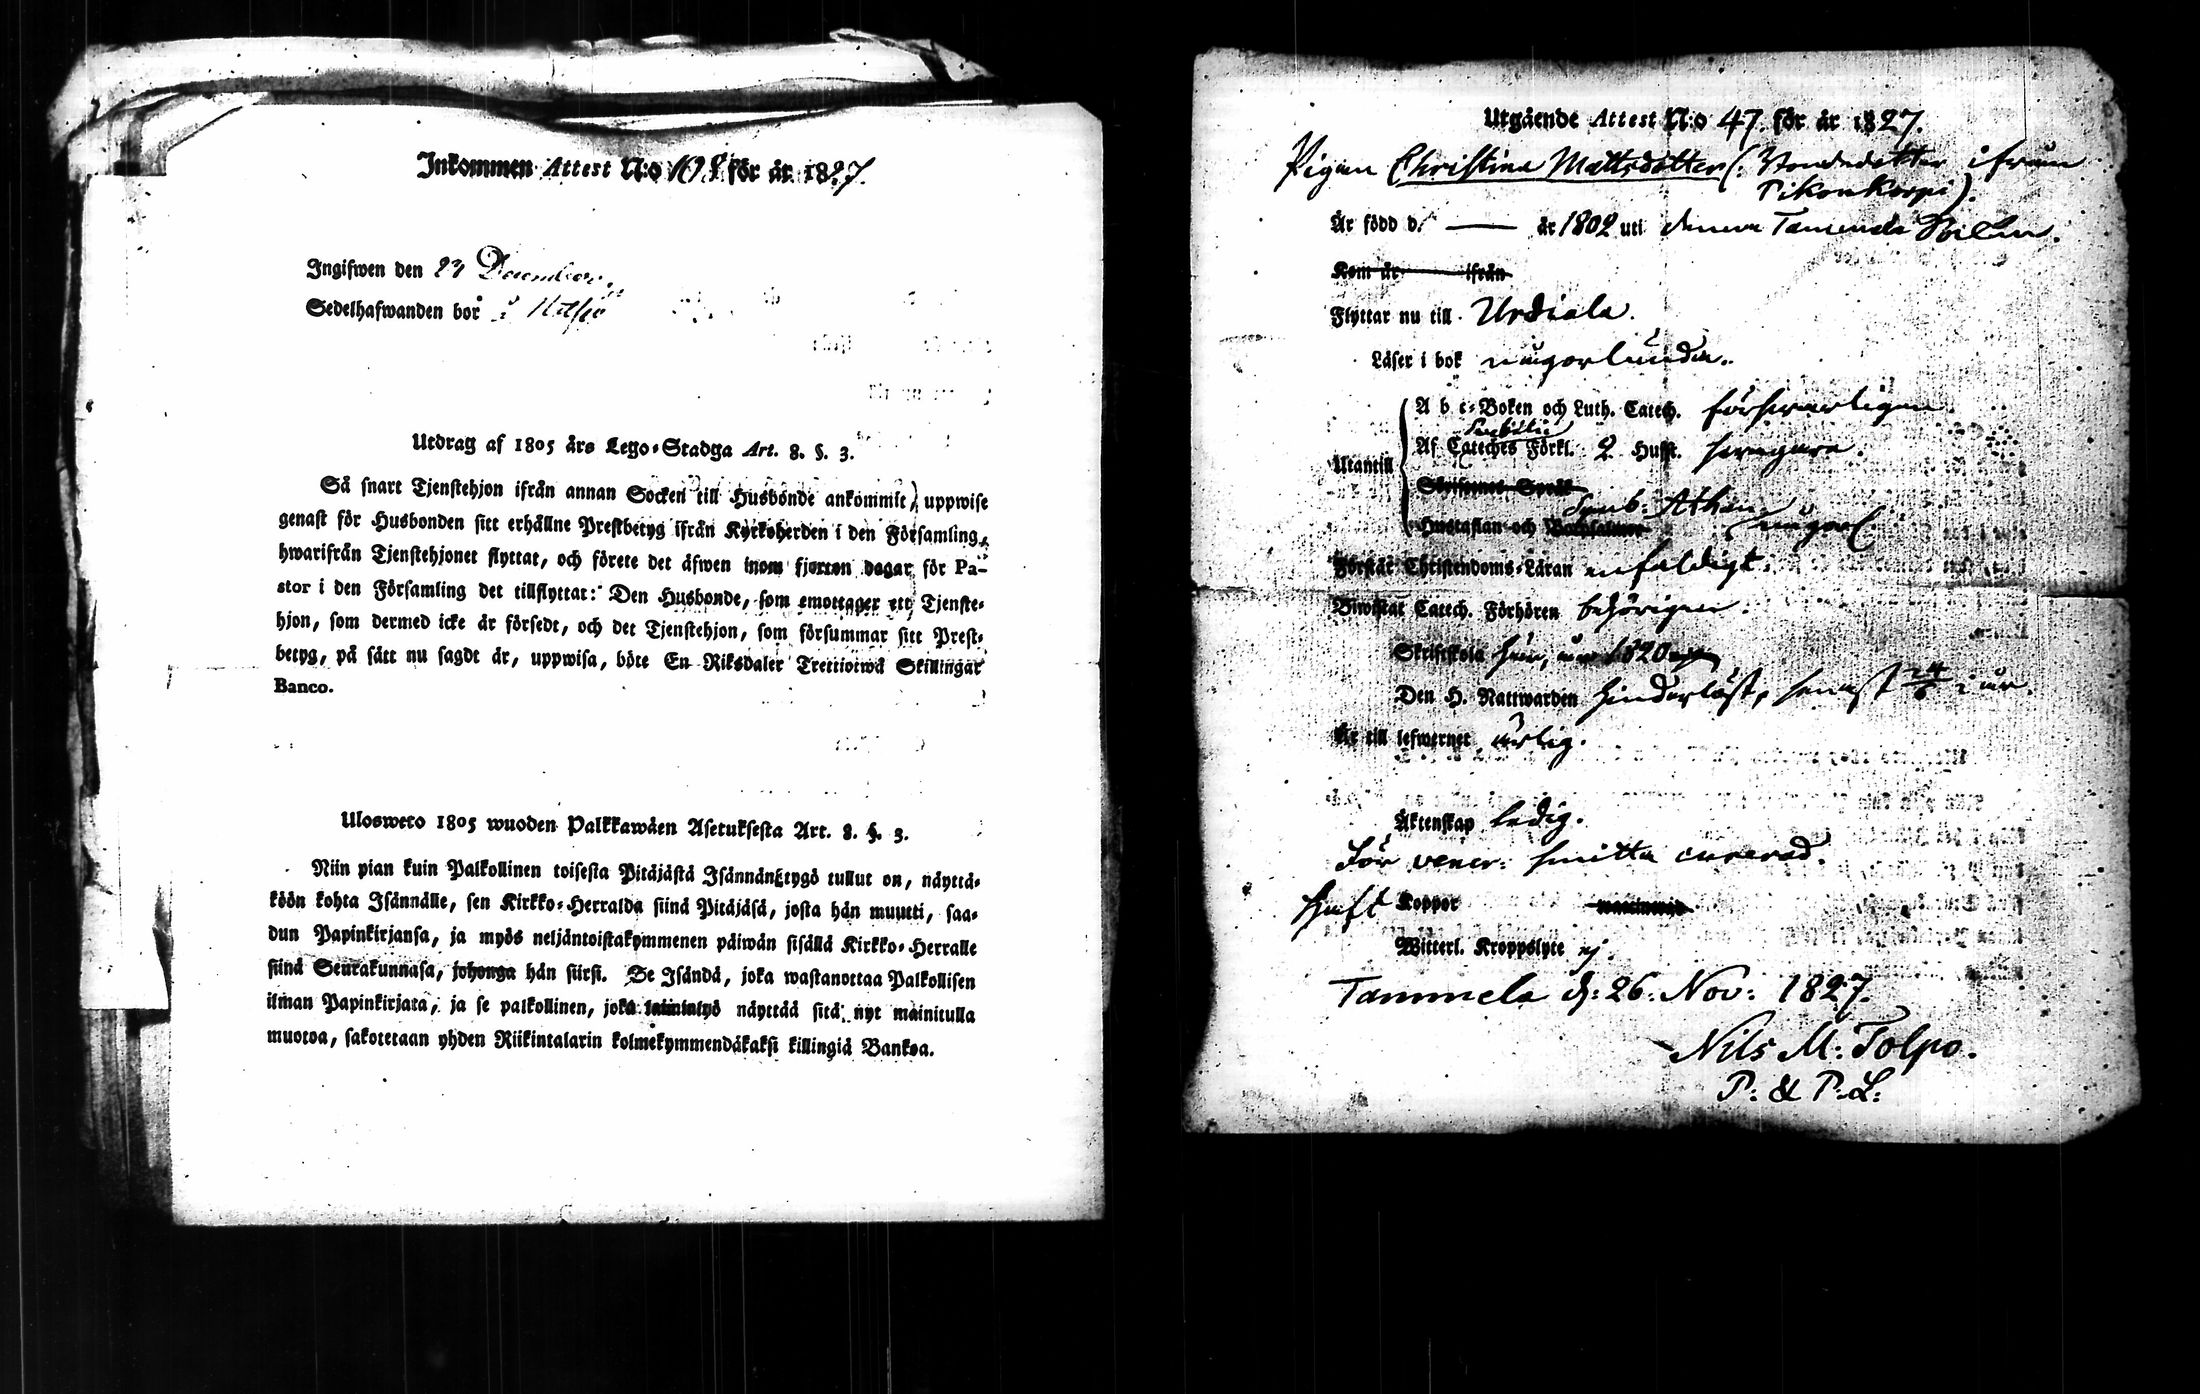 Inkommen Attest N:o 108 för år 1827.
Ingifwen den 23 December
Sedelhafwanden bor i
Utdrag af 1805 års Lego-Stadga Art. 8. §. 3.
Så snart Tjenstehjon ifrån annan Socken till Husbonde ankommit, uppwise
genast för Husbonden sitt erhållne Prestbetyg ifrån Kyrkoherden i den Församling,
hwarifrån Tjenstehjonet flyttat, och förete det äfwen inom fjorton dagar för Pa-
stor i den Församling det tillflyttat: Den Husbonde, som emottager ett Tjenste-
hjon, som dermed icke är försedt, och det Tjenstehjon, som försummar sitt Prest-
betyg, på sätt nu sagdt är, uppwisa, böte En Riksdaler Trettiotwå Skillingar
Banco.
Ulosweto 1805 wuoden Palkkawäen Asetuksesta Art. 8. §. 3.
Niin pian kuin Palkollinen toisesta Pitäjästä Isännäntygö tullut on, näyttä-
köön kohta Isännälle, sen Kirkko-Herralda siinä Pitäjäsä, josta hän muutti, saa-
dun Papinkirjansa, ja myös neljäntoistakymmenen päiwän sisällä Kirkko-Herralle
siinä Seurakunnasa, johonga hän siirsi. Se Isändä, joka wastanottaa Palkollisen
ilman Papinkirjata, ja se palkollinen, joka laiminlyö näyttää sitä nyt mainitulla
muotoa, sakotetaan yhden Riikintalarin kolmekymmendäkaksi killingiä Bankoa.
Utgående Attest N:o 47. för år 1827.
Pigan Christina Mattsdotter (: dotter ifrån
Pikonkorpi).
Är född d. — år 1802 uti denna Tammela Socken.
Kom år ifrån
Flyttar nu till Urdiala.
Läser i bok någorlunda.
Utantill
A b c-Boken och Luth. Catech. försvarligen.
Af Cateches Förkl. 2 Hufst. svagare.
Symb. Athan.
Hustaflan och någorl.
Förstår Christendoms-Läran enfaldigt.
Biwistat Catech. Förhören behörigen.
Skriftskola här, 1820
Den H. Nattwarden hinderlöst, senast 24/6 i år.
Är till lefwernet ärlig.
Äktenskap ledig.
För vener. smitta curerad.
Haft Koppor
Witterl. Kroppslyte ej.
Tammela d: 26. Nov: 1827.
Nils M: Tolpo.
P: & P: L: